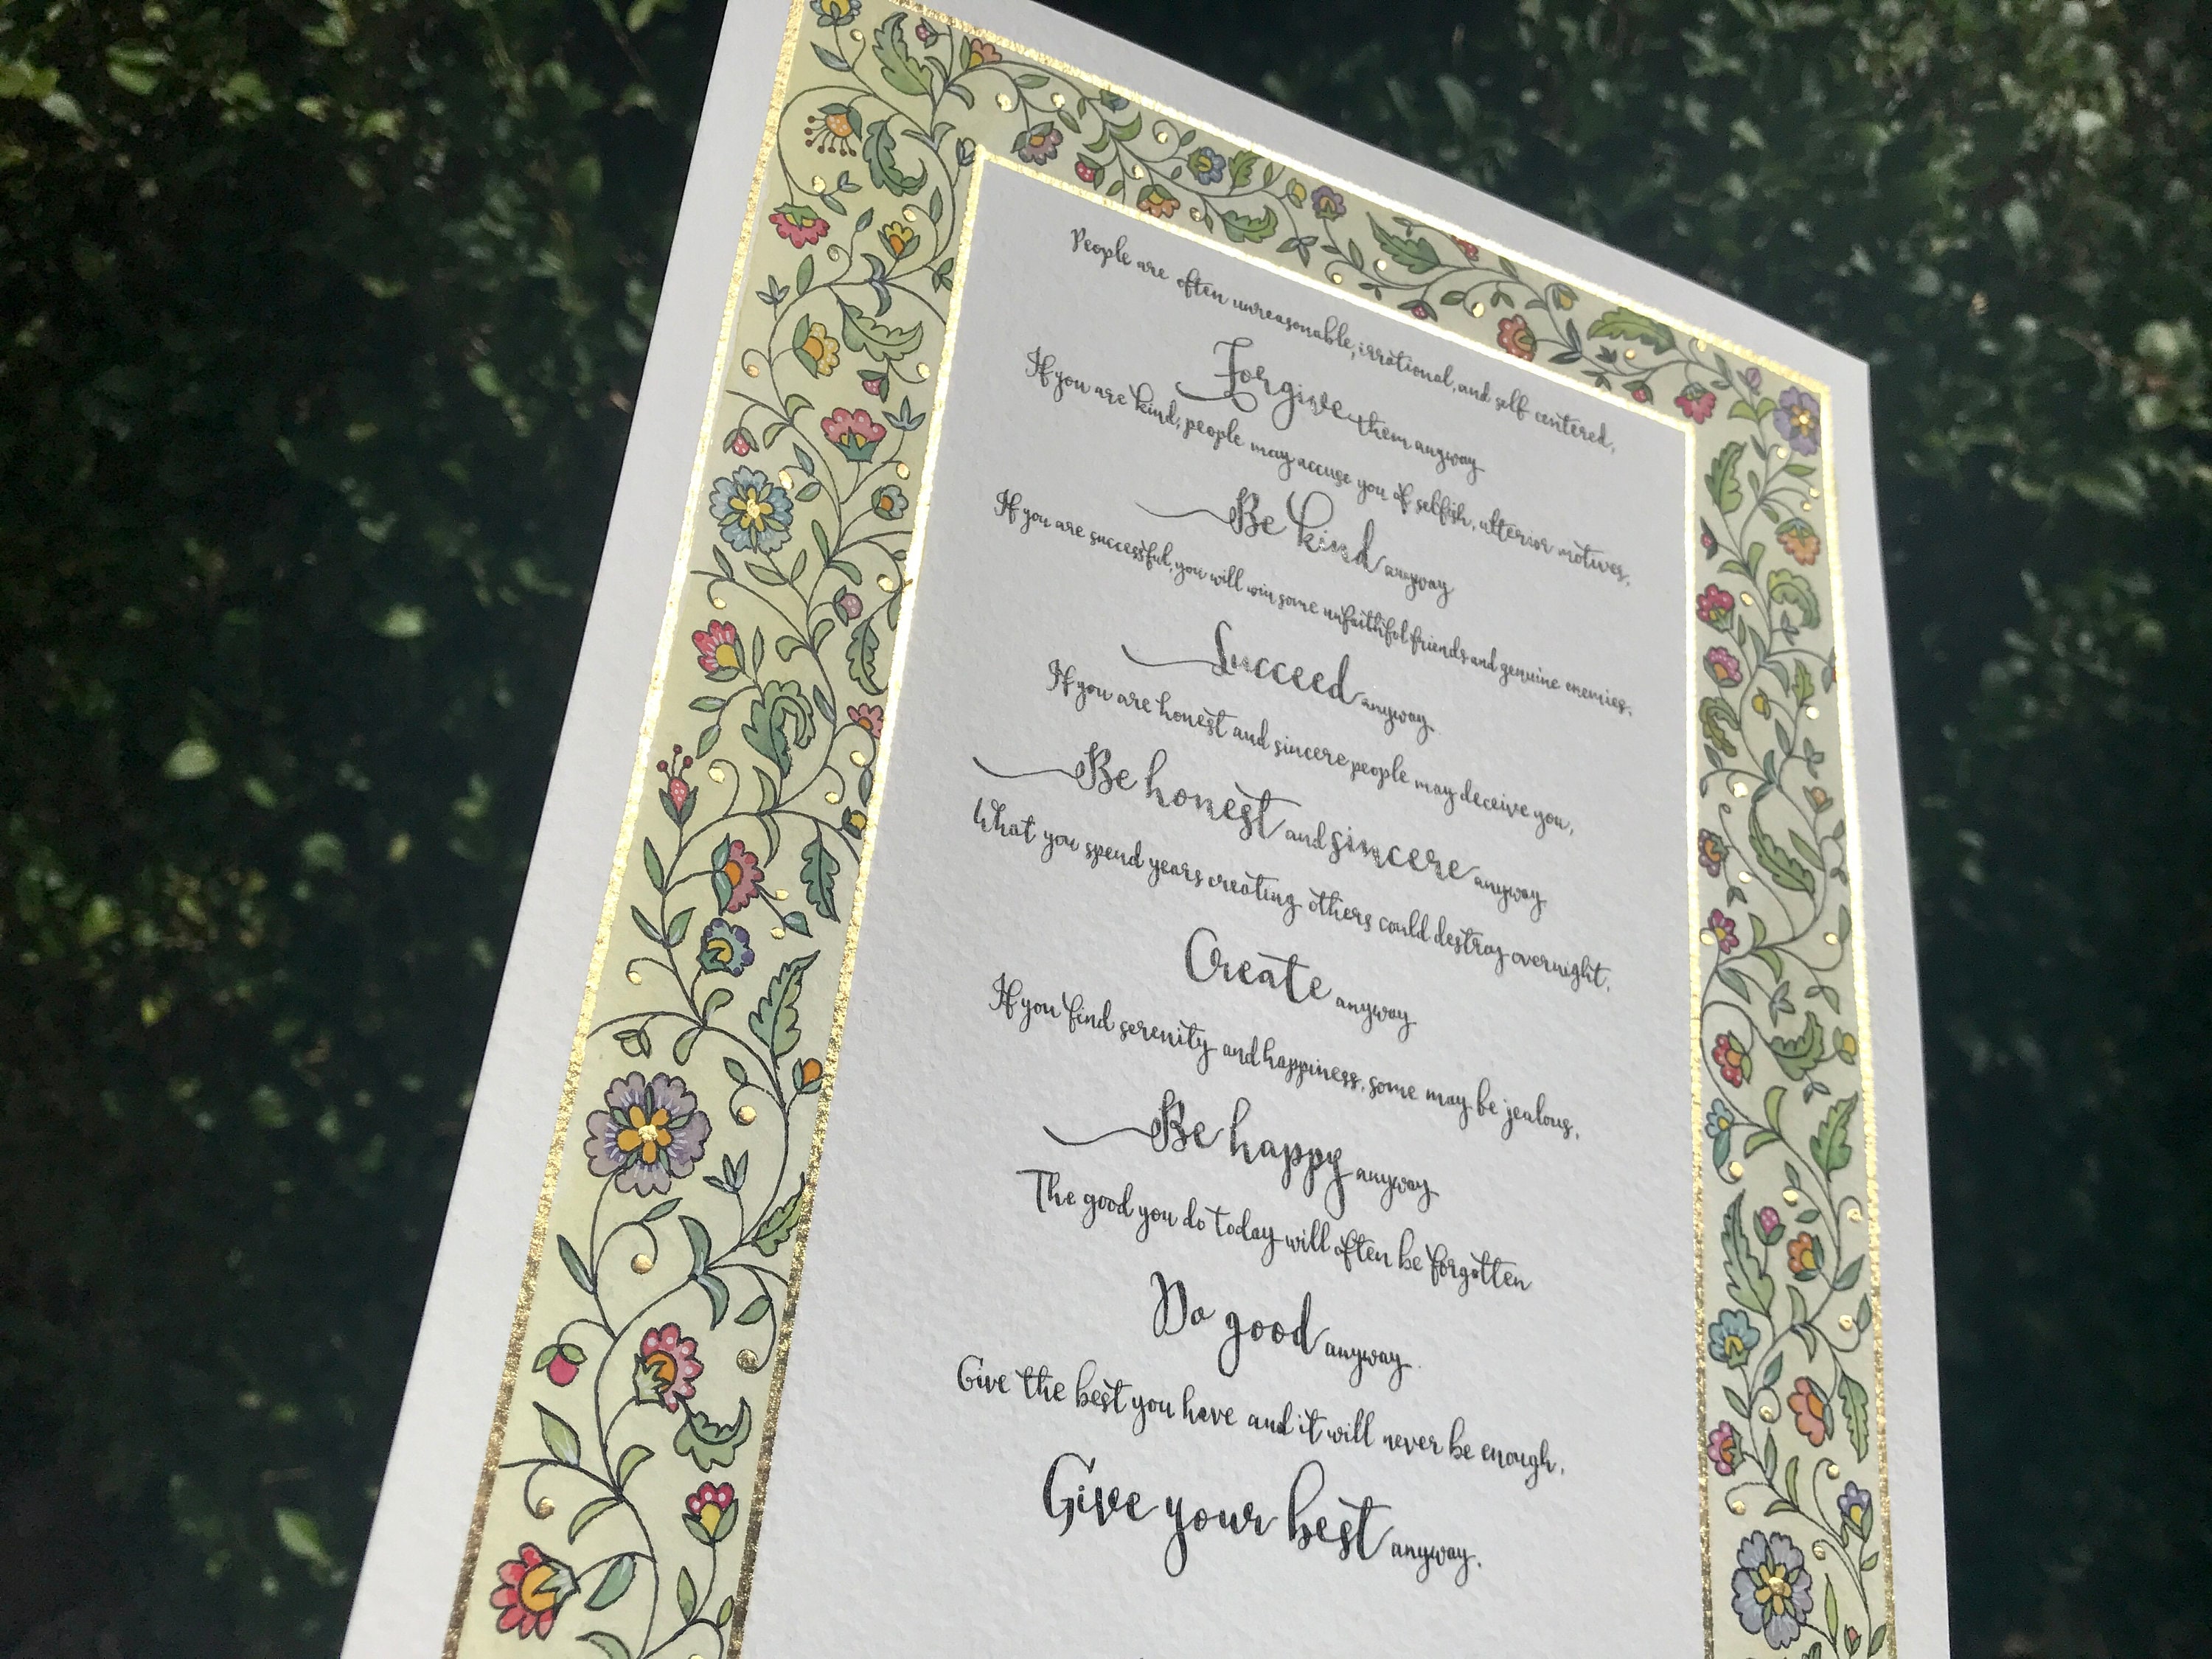 People are often unreasonable, irrational, and self centered,
Forgive them anyway
If you are kind, people may accuse you of selfish, ulterior motives,
Be kind anyway
If you are successful, you will win some unfaithful friends and genuine enemies,
Succeed anyway
If you are honest and sincere people may deceive you,
Be honest and sincere anyway
What you spend years creating others could destroy overnight,
Create anyway
If you find serenity and happiness, some may be jealous,
Be happy anyway
The good you do today will often be forgotten
Do good anyway.
Give the best you have and it will never be enough,
Give your best anyway.